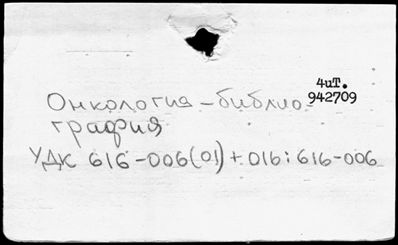 4иТ.
942709
Онкология-библио
графия
УДК 616-006(01)+016:616-006